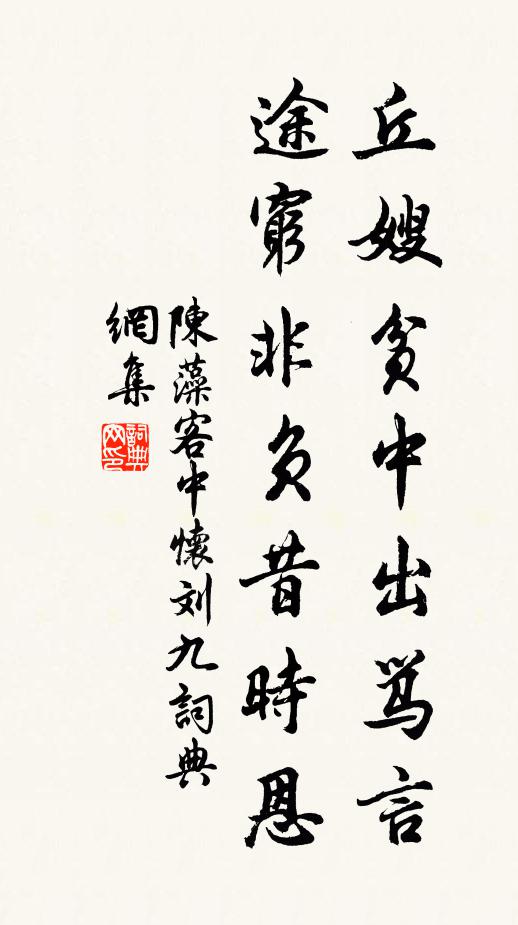 丘嫂貧中出骂言
途窮非負昔時恩
陳藻客中懷刘九詞典
網集
詞典网印